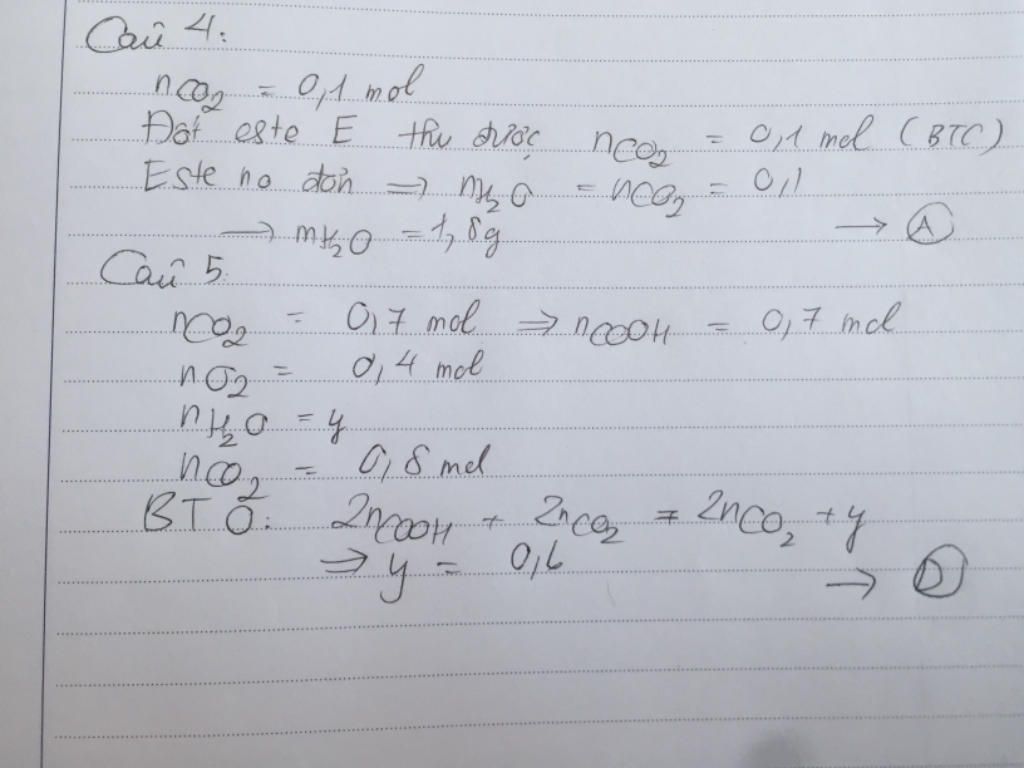 Câu 4:
nCO₂ = 0,1 mol
Đốt este E thu được nCO₂ = 0,1 mol (BTC)
Este no đơn ⇒ nH₂O = nCO₂ = 0,1
→ mH₂O = 1,8g → A
Câu 5:
nCO₂ = 0,7 mol ⇒ nCOOH = 0,7 mol
nO₂ = 0,4 mol
nH₂O = y
nCO₂ = 0,8 mol
BT O: 2nCOOH + 2nCO₂ = 2nCO₂ + y
⇒ y = 0,6 → D